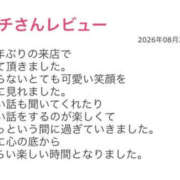 チさんレビュー
2026年08月
年ぶりの来店で
て頂きました。
らないとても可愛い笑顔を
に見れました。
い話も聞いてくれたり
い話をするのが楽しくて
っという間に過ぎていきました。
に心の底から
らい楽しい時間となりました。